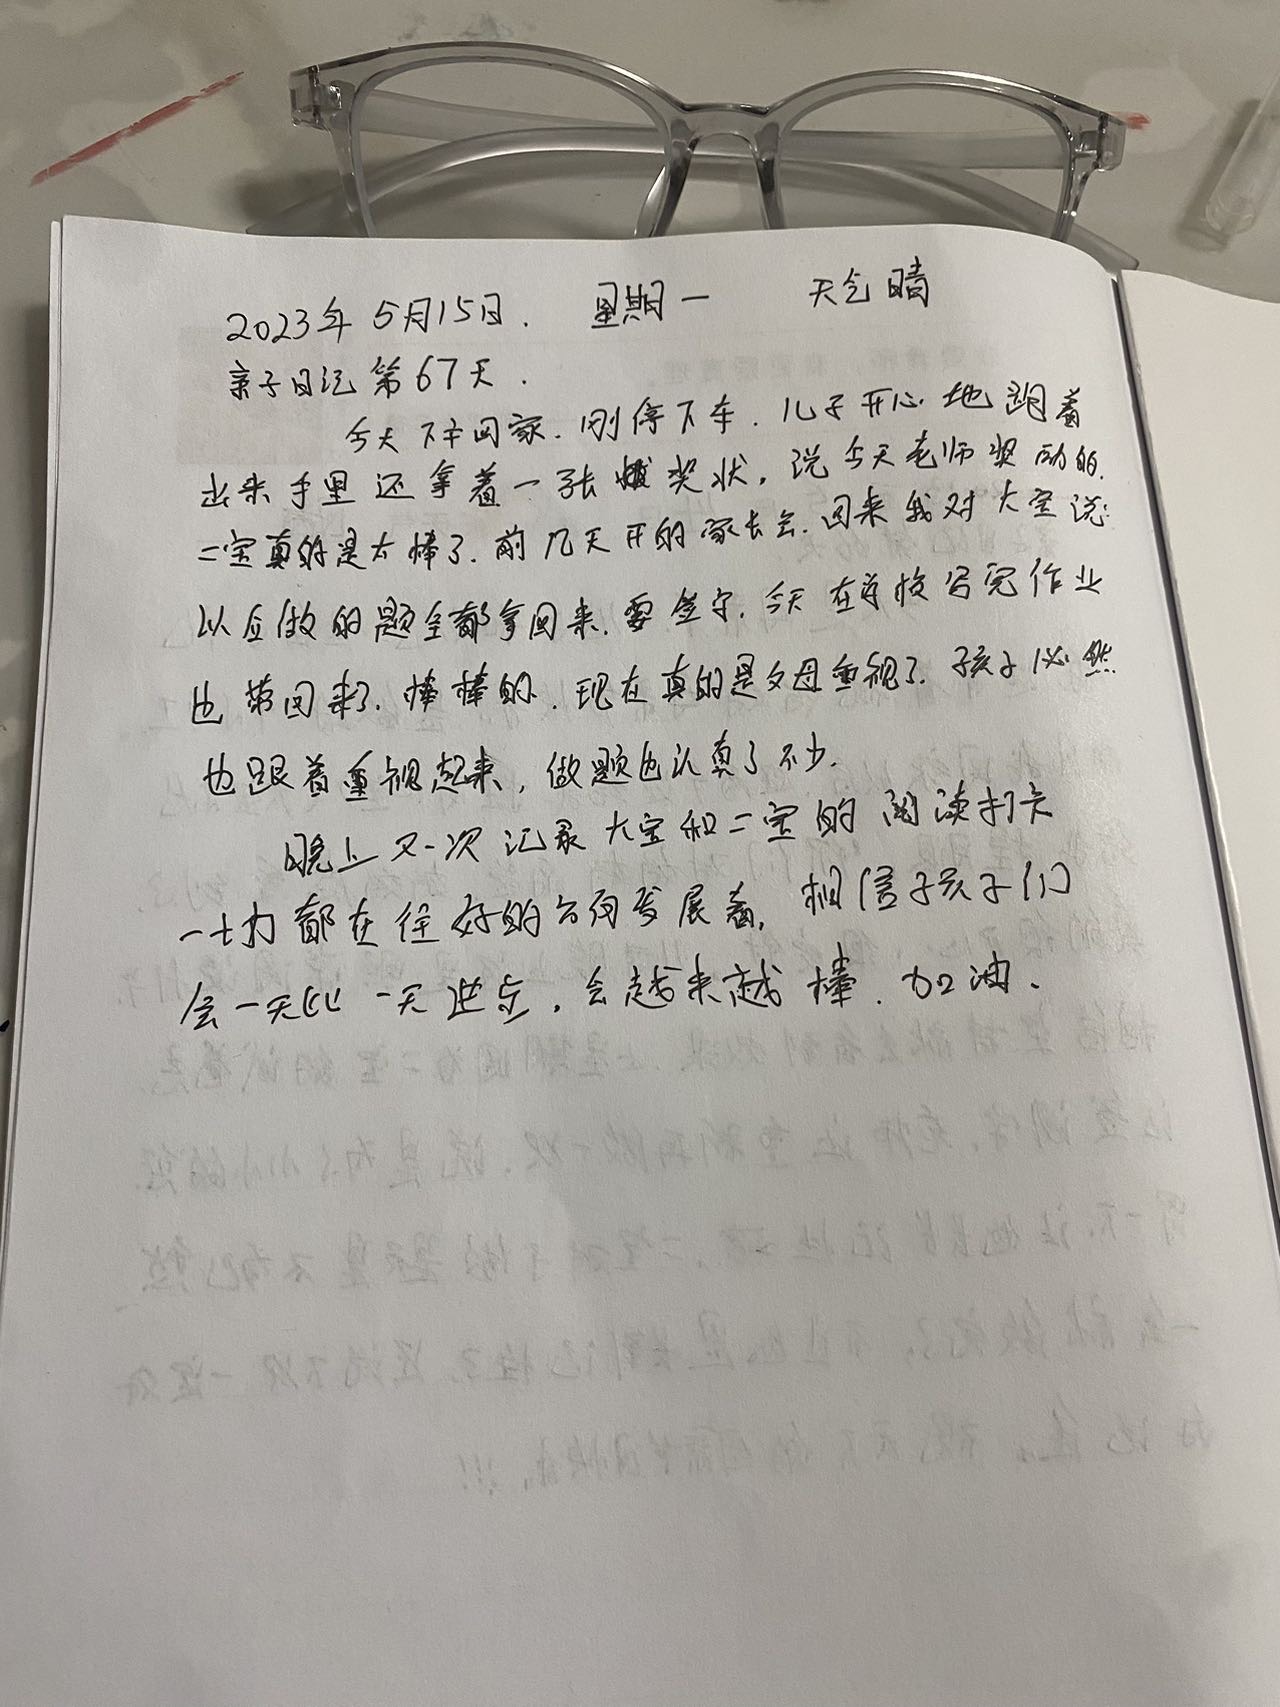 2023年5月15日. 星期一 天气晴
亲子日记第67天.
今天下午回家.刚停下车.儿子开心地跑着
出来手里还拿着一张奖状,说今天老师奖励的.
二宝真的是太棒了.前几天开的家长会.回来我对大宝说:
以后做的题全都拿回来.要签字.今天在学校写完作业
也带回来了.棒棒的.现在真的是父母重视了.孩子必然
也跟着重视起来,做题也认真了不少.
晚上又一次记录大宝和二宝的阅读打卡
一切都在往好的方向发展着,相信孩子们
会一天比一天进步,会越来越棒.加油.